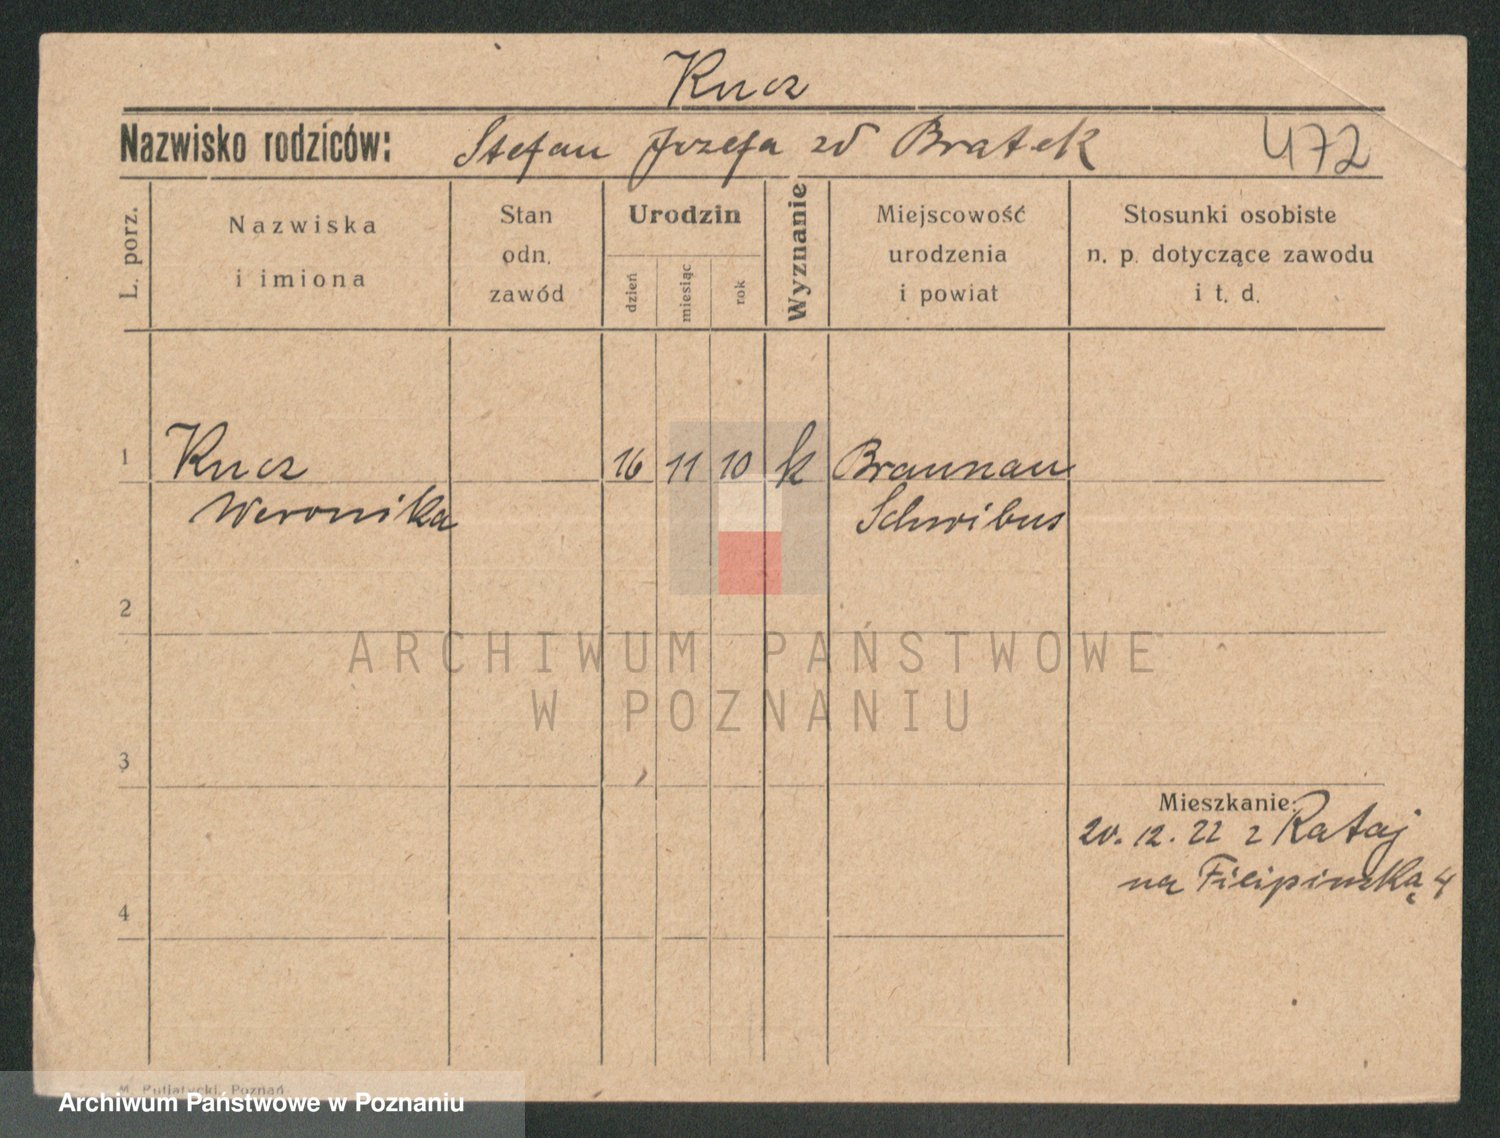 Kucz
Nazwisko rodziców: Stefan Józefa zd Bratek 472
L. porz.
Nazwiska
i imiona
Stan
odn.
zawód
Urodzin
dzień
miesiąc
rok
Wyznanie
Miejscowość
urodzenia
i powiat
Stosunki osobiste
n. p. dotyczące zawodu
i t. d.
1 Kucz 16 11 10 k Braunau
Weronika Schwibus
2
ARCHIWUM PAŃSTWOWE
W POZNANIU
3
Mieszkanie:
20. 12. 22 z Rataj
na Filipińską 4
4
M. Putiatycki, Poznań
Archiwum Państwowe w Poznaniu